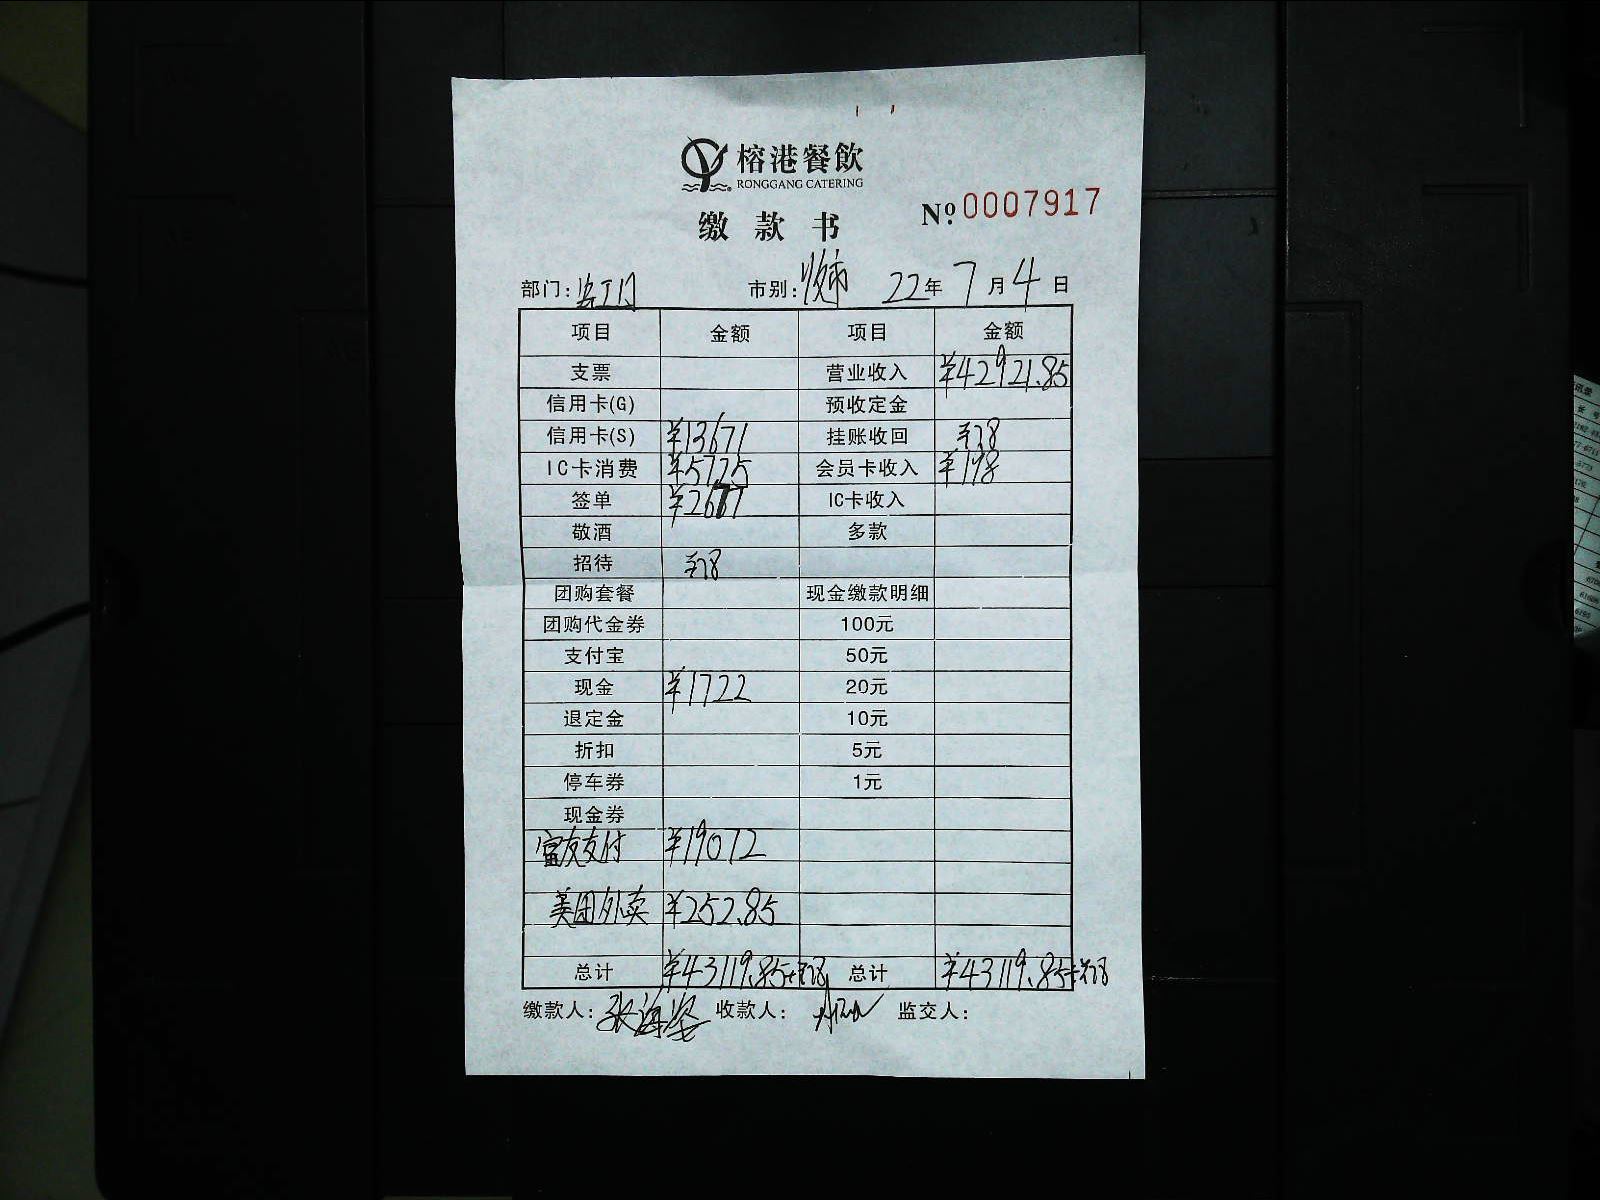 榕港餐飲
RONGGANG CATERING
缴款书
№ 0007917
部门: 市别: 22年 7月 4日
项目 金额 项目 金额
支票 营业收入 ¥42921.85
信用卡(G) 预收定金
信用卡(S) ¥13671 挂账收回
IC卡消费 ¥5725 会员卡收入 ¥198
签单 ¥2677 IC卡收入
敬酒 多款
招待
团购套餐 现金缴款明细
团购代金券 100元
支付宝 50元
现金 ¥1722 20元
退定金 10元
折扣 5元
停车券 1元
现金券
富友支付 ¥19072
美团外卖 ¥252.85
总计 ¥43119.85 总计 ¥43119.85
缴款人: 张海 收款人: 监交人: